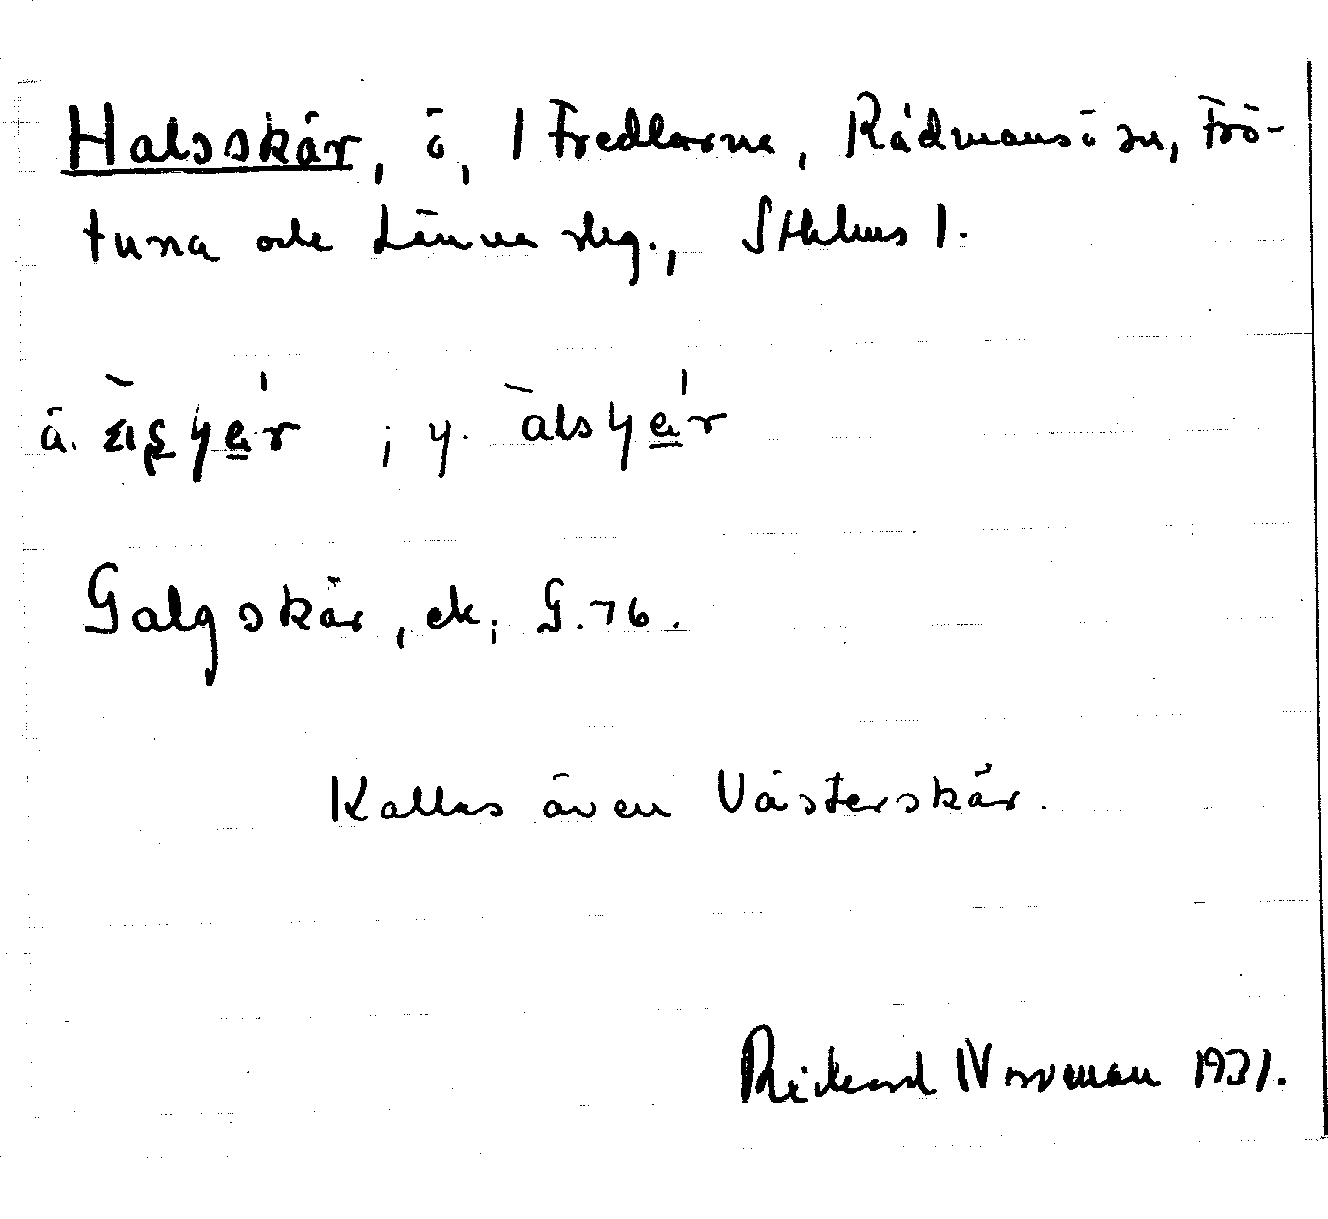 Halsskär, ö, i Fredlarna, Rådmansö sn, Frö-
tuna och Länna slg., Sthlms l.
ä. ; y. àlsɥe̲'r
Galgskär, ek; G. 76.
Kallas även Västerskär.
Rickard Norrman 1931.